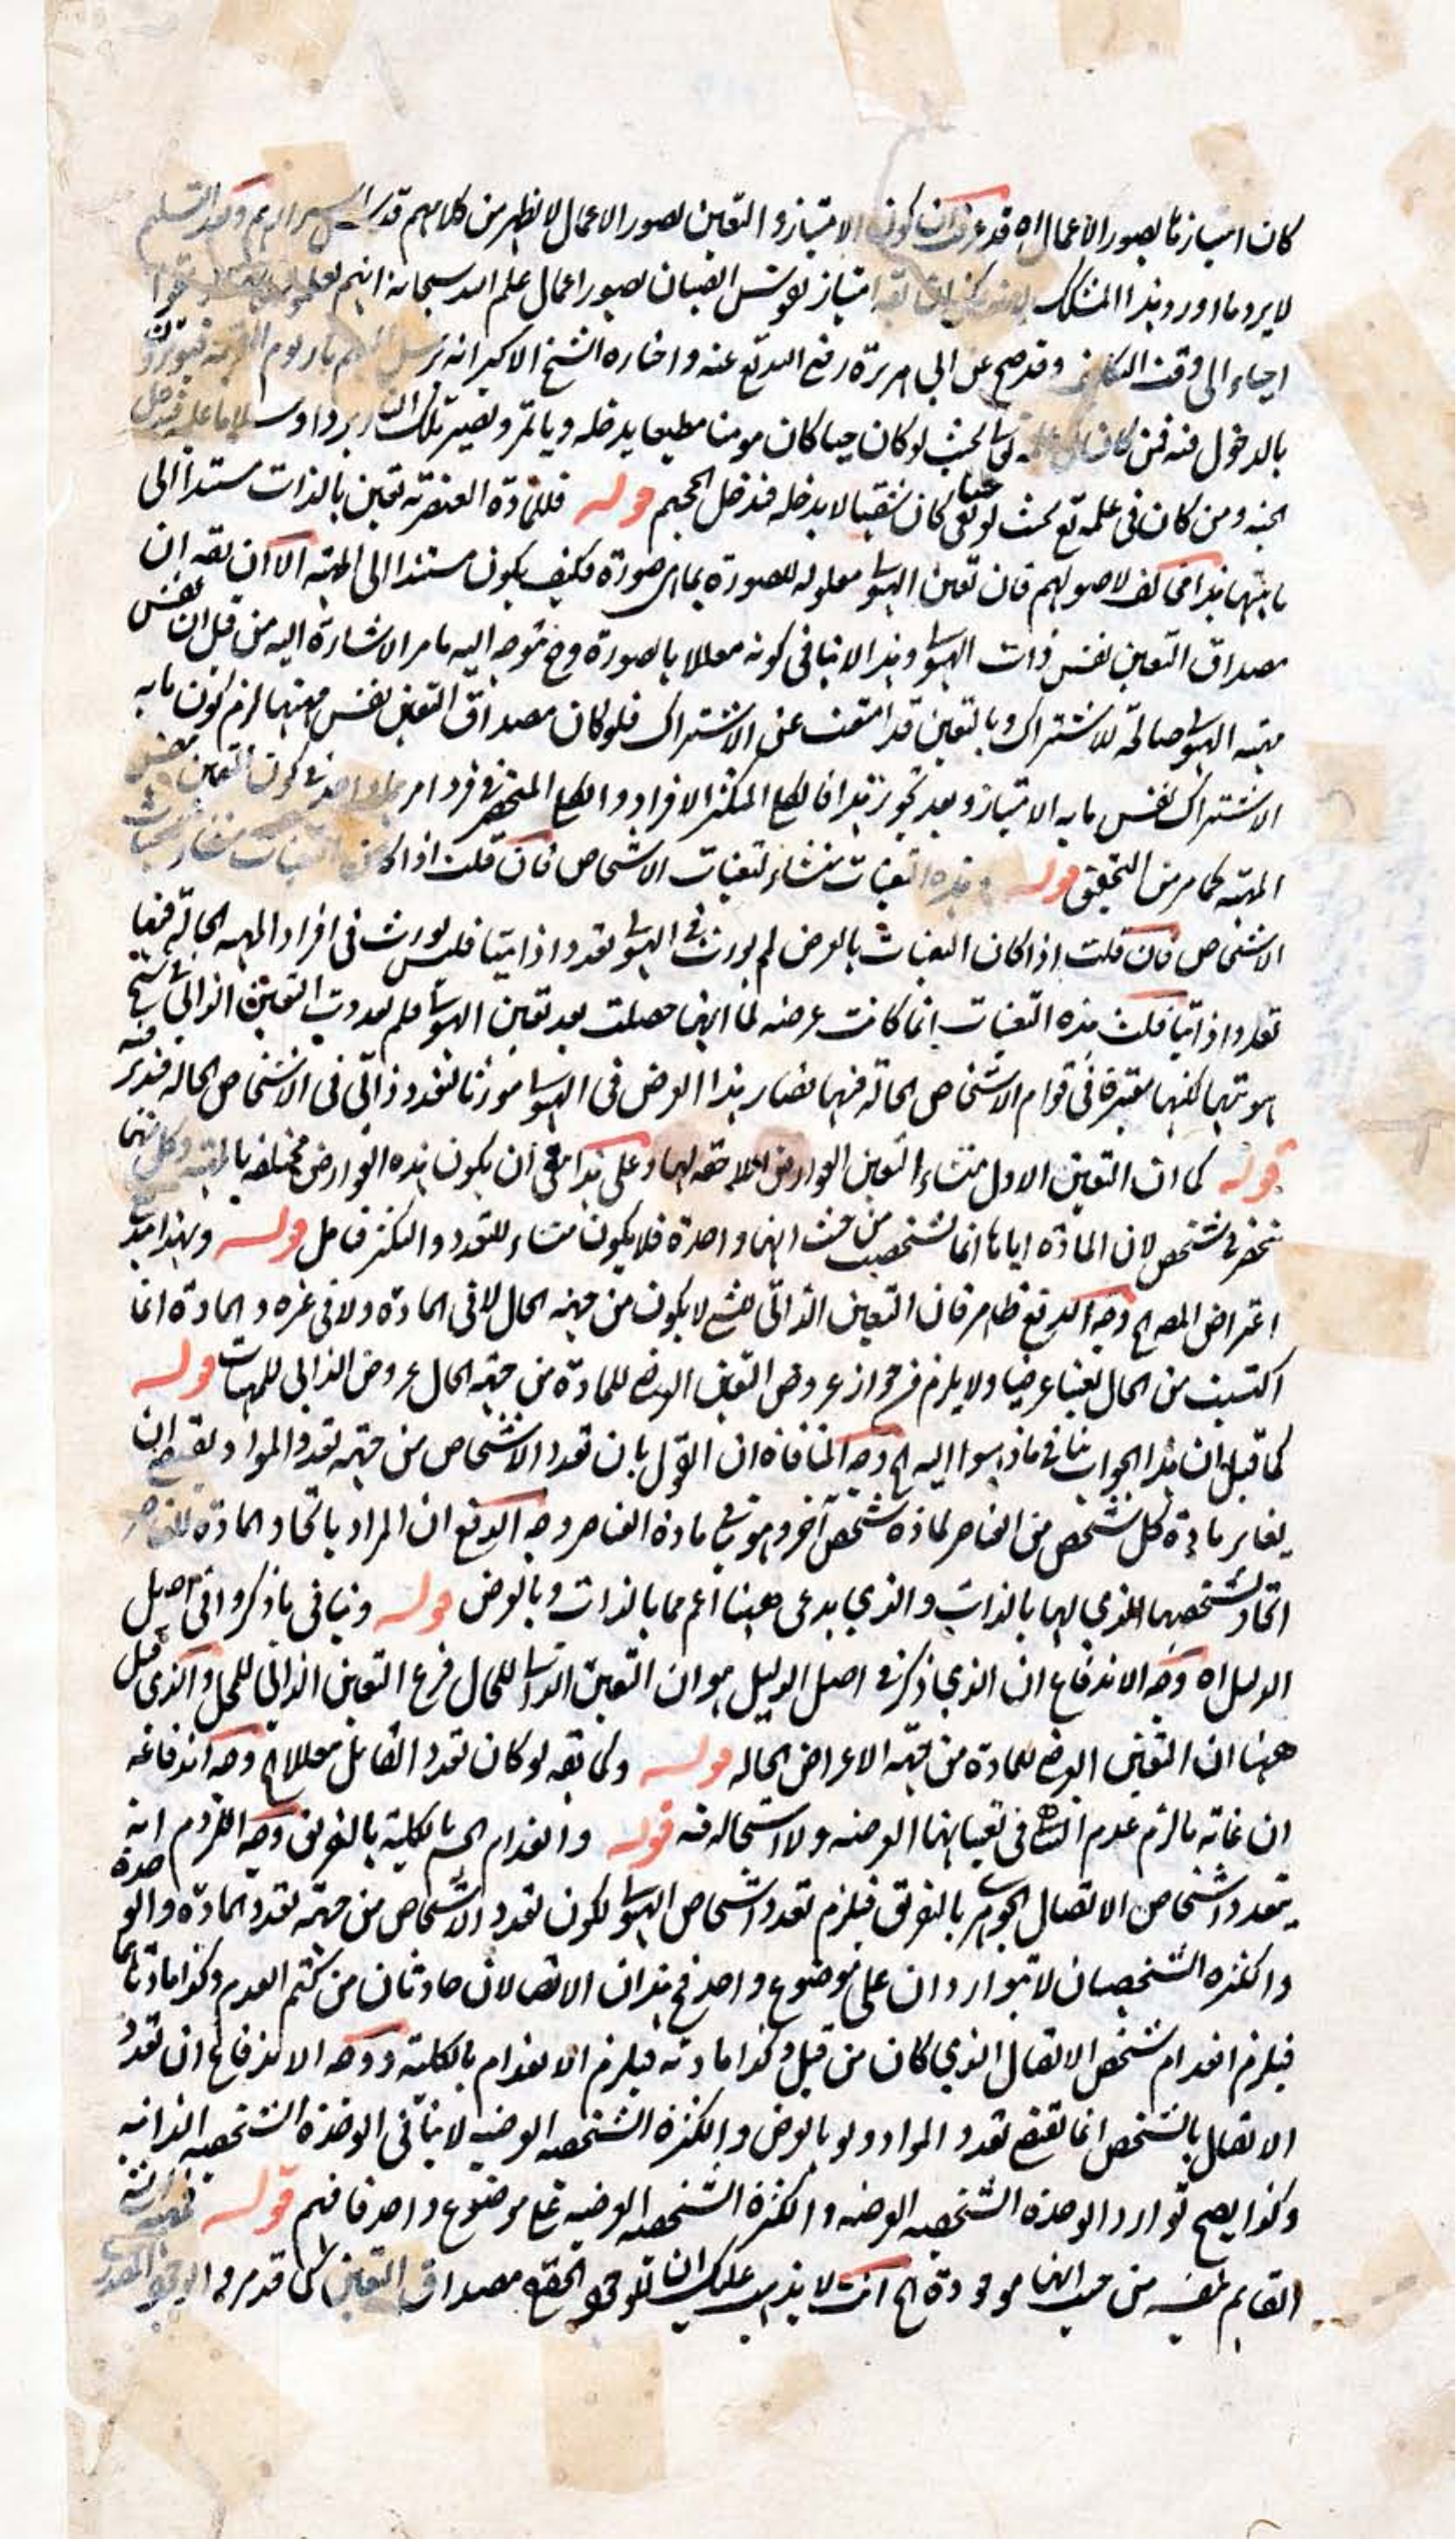 كان امتيازها بصور الاعمال اه قد عرفت ان كون الامتياز و التعين بصور الاعمال لا يظهر من كلامهم قدس الله اسرارهم وبعد التسليم
لا يرد ما اورد هذا المشكك امتياز نفوس الصبيان بصور اعمال علم الله سبحانه انهم
احياء الى وقت التكليف وقد صح عن ابي هريرة رفع الله تع عنه و اختاره الشيخ الاكبر انه يرسل اليهم نار يوم القيمة
بالدخول فيه فمن كان بحيث لو كان حيا كان مومنا مطيعا يدخله و ياتمر و يصير تلك النار بردا و سلاما عليه فيدخل
الجنة و من كان في علمه تع بحيث لو بقى حيا كان شقيا لا يدخله فيدخل الجحيم قوله فللمادة العنصرية تعين بالذات مستندا الى
ماهيتها هذا مخالف لاصولهم فان تعين الهيولى معلولة للصورة بما هي صورة فكيف يكون مستندا الى المهية الا ان يقه ان
مصداق التعين نفس ذات الهيولى و هذا لا ينافي كونه معللا بالصورة وح توجه اليه ما مر الاشارة اليه من قبل ان نفس
مهية الهيولى صالحة للاشتراك و بالتعين قد امتنعت عن الاشتراك فلو كان مصداق التعين نفس مهيتها لزم كون ما به
الاشتراك نفس ما به الامتياز و بعد تجويز هذا فالكلي المتكثر الافراد و الكلي المنحصر في فرد امر واحد في كون التعين نفس
المهية كما مر من التحقيق قوله و هذه التعينات منشاء لتعينات الاشخاص فان قلت اذا
الاشخاص فان قلت اذا كان التعينات بالعرض لم يورث في الهيولى تعددا ذاتيا فكيف يورث في افراد المهية الحالة فيها
تعددا ذاتيا قلت هذه التعينات انما كانت عرضية لما انها حصلت بعد تعين الهيولى فلم يعدد التعين الذاتي
هويتها لكنها معتبرة في قوام الاشخاص الحالة فيها فصار هذا العرض في الهيولى مورثا لتعدد ذاتي في الاشخاص الحالة فتدبر فيه
قوله كما ان التعين الاول منشاء لتعين العوارض اللاحقة لها و على هذا ينبغي ان يكون هذه العوارض مختلفة بالمهية و كل منها
منحصر في شخص لان المادة اياها انما تشخصت من حيث انها واحدة فلا يكون منشاء للتعدد و التكثر فتامل قوله و بهذا
اعتراض المصه الخ وجه الدفع ظاهر فان التعين الذاتي للشئ لا يكون من جهة الحال لا في المادة ولا في غيره و المادة انما
اكتسبت من الحال تعينا عرضيا ولا يلزم من جواز عروض التعين العرضي للمادة من جهة الحال عروض الذاتي للمهيات قوله
كما قيل ان هذا الجواب ينافي ما ذهبوا اليه الخ وجه المنافاة ان القول بان تعدد الاشخاص من جهة تعدد المواد يقتضي ان
يغاير مادة كل شخص من العناصر لمادة شخص آخر وجه الدفع ان المراد باتحاد المادة للعناصر
اتحاد تشخصها الذي لها بالذات و الذي يدعى ههنا اعم مما بالذات و بالعرض قوله و ينافي ما ذكروا في اصل
الدليل اه وجه الاندفاع ان الذي ذكر في اصل الدليل هو ان التعين الذاتي للحال فرع التعين الذاتي للمحل و الذي قيل
ههنا ان التعين العرضي للمادة من جهة الاعراض الحالة قوله و كما يقه لو كان تعدد القابل معللا الخ وجه اندفاعه
ان غاية ما لزم عدم التناهي في تعيناتها العرضية ولا استحالة فيه قوله و انعدام الجسم بالكلية بالتفريق وجه اللزوم انه
يتعدد اشخاص الاتصال الجوهري بالتفريق فيلزم تعدد اشخاص الهيولى لكون تعدد الاشخاص من جهة تعدد المادة و الوحدة
و الكثرة الشخصيتان لا تتواردان على موضوع واحد فح هذان الاتصالان حادثان من كتم العدم وكذا مادتاهما
فيلزم انعدام شخص الاتصال الذي كان من قبل و كذا مادته فيلزم الانعدام بالكلية و وجه الاندفاع ان تعدد
الاتصال بالشخص انما يقتضي تعدد المواد و لو بالعرض و الكثرة الشخصية العرضية لا ينافي الوحدة الشخصية الذاتية
و كذا يصح توارد الوحدة الشخصية العرضية و الكثرة الشخصية العرضية على موضوع واحد فافهم قوله
القايم بنفسه من حيث انها موجودة الخ انت لا يذهب عليك ان للوجود الحقيقي مصداق التعين كما قد مر و الوجود المصدري